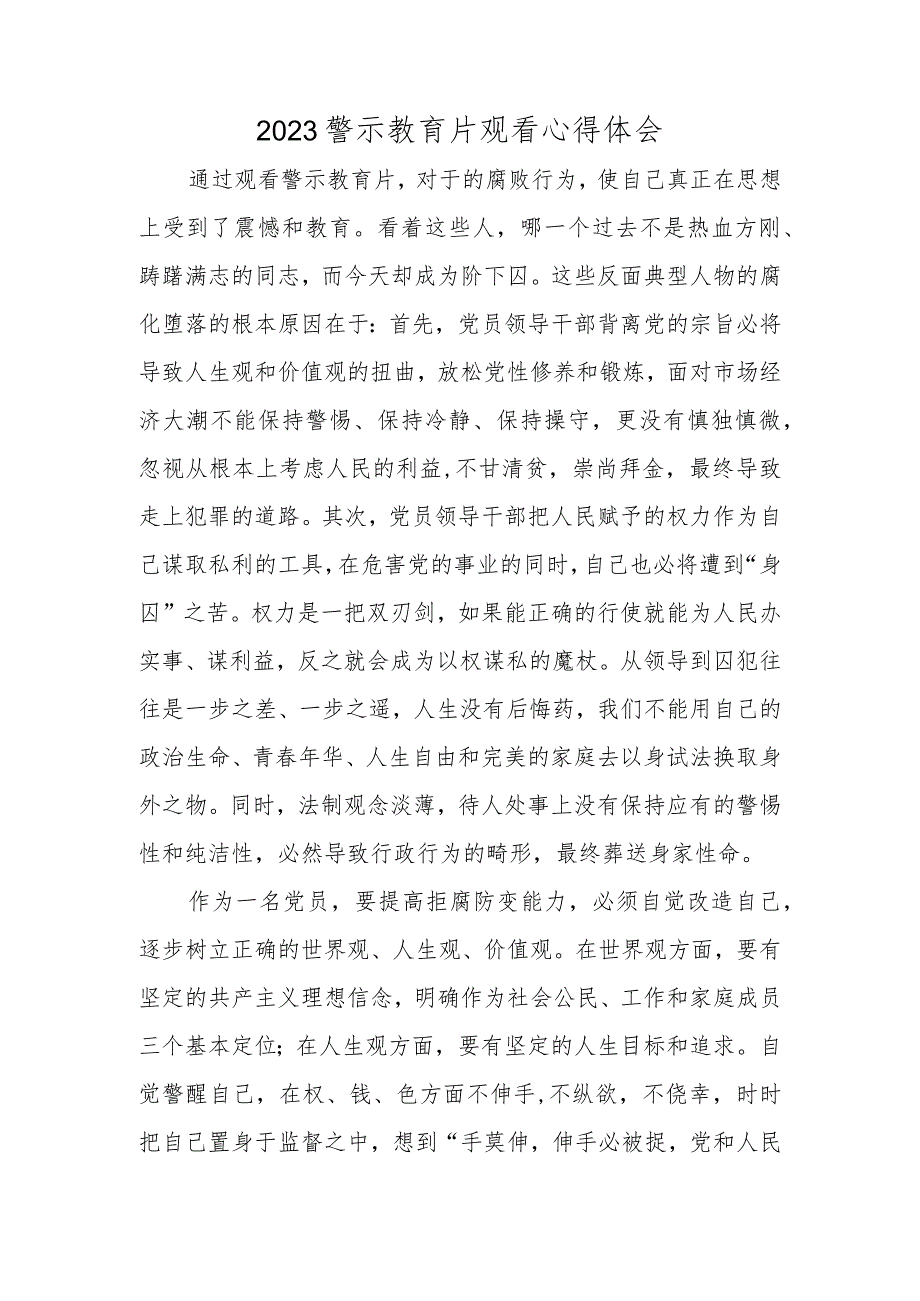 2023警示教育片观看心得体会
通过观看警示教育片，对于的腐败行为，使自己真正在思想
上受到了震憾和教育。看着这些人，哪一个过去不是热血方刚、
踌躇满志的同志，而今天却成为阶下囚。这些反面典型人物的腐
化堕落的根本原因在于：首先，党员领导干部背离党的宗旨必将
导致人生观和价值观的扭曲，放松党性修养和锻炼，面对市场经
济大潮不能保持警惕、保持冷静、保持操守，更没有慎独慎微，
忽视从根本上考虑人民的利益,不甘清贫，崇尚拜金，最终导致
走上犯罪的道路。其次，党员领导干部把人民赋予的权力作为自
己谋取私利的工具,在危害党的事业的同时,自己也必将遭到“身
囚”之苦。权力是一把双刃剑，如果能正确的行使就能为人民办
实事、谋利益，反之就会成为以权谋私的魔杖。从领导到囚犯往
往是一步之差、一步之遥，人生没有后悔药，我们不能用自己的
政治生命、青春年华、人生自由和完美的家庭去以身试法换取身
外之物。同时，法制观念淡薄，待人处事上没有保持应有的警惕
性和纯洁性，必然导致行政行为的畸形，最终葬送身家性命。
作为一名党员，要提高拒腐防变能力，必须自觉改造自己，
逐步树立正确的世界观、人生观、价值观。在世界观方面，要有
坚定的共产主义理想信念，明确作为社会公民、工作和家庭成员
三个基本定位；在人生观方面，要有坚定的人生目标和追求。自
觉警醒自己，在权、钱、色方面不伸手,不纵欲，不侥幸，时时
把自己置身于监督之中，想到“手莫伸，伸手必被捉，党和人民